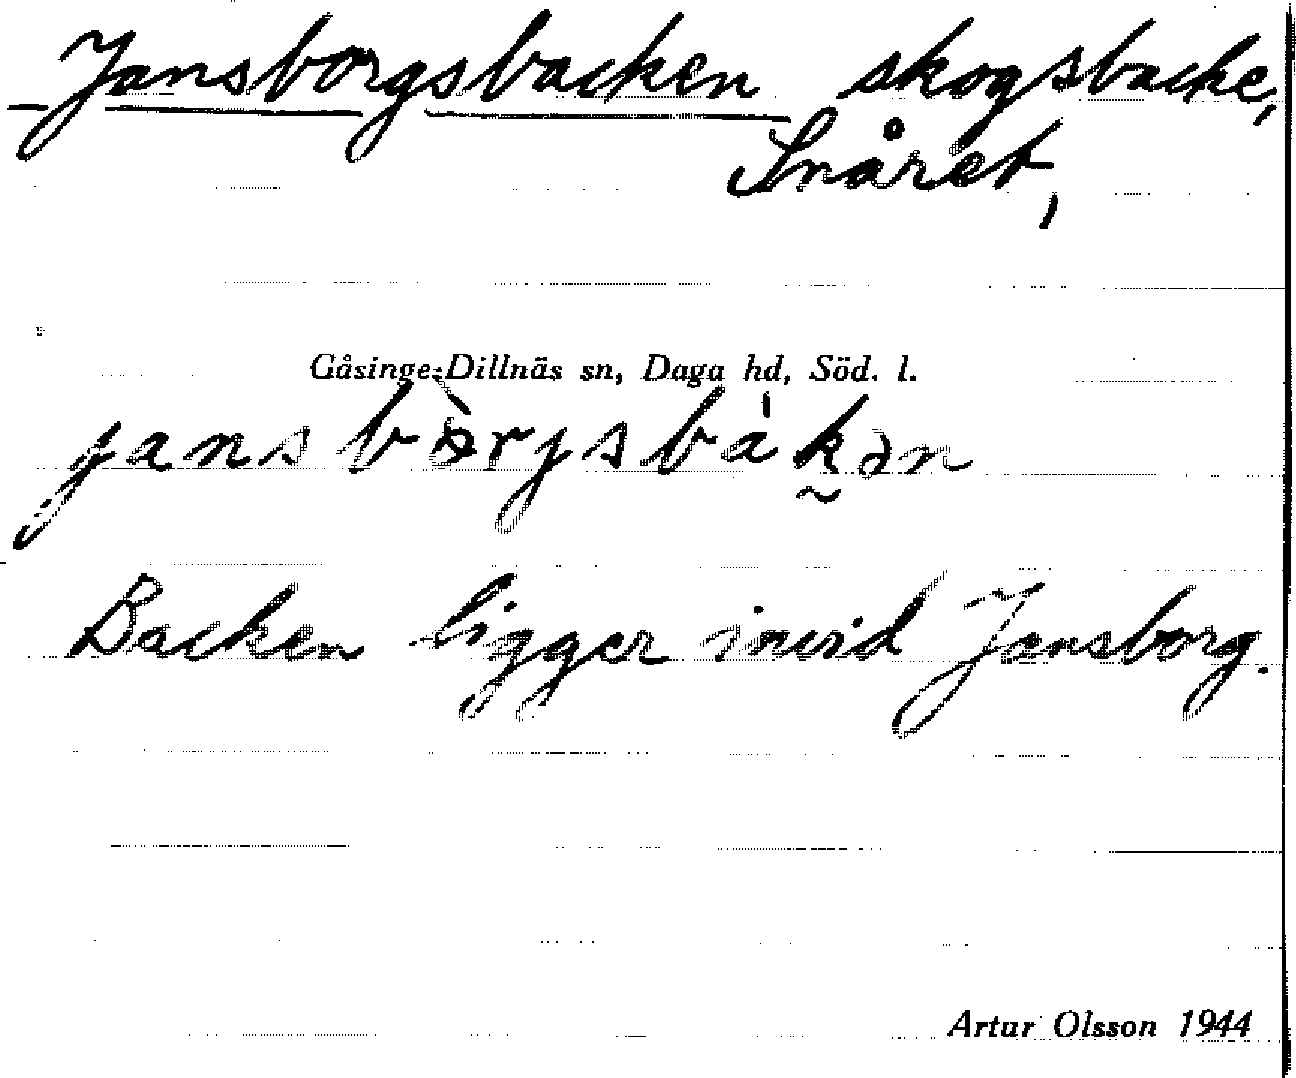 Jansborgsbacken skogsbacke,
Snåret,
Gåsinge-Dillnäs sn, Daga hd, Söd. l.
jansbòrjsbákən
Backen ligger invid Jansborg.
Artur Olsson 1944